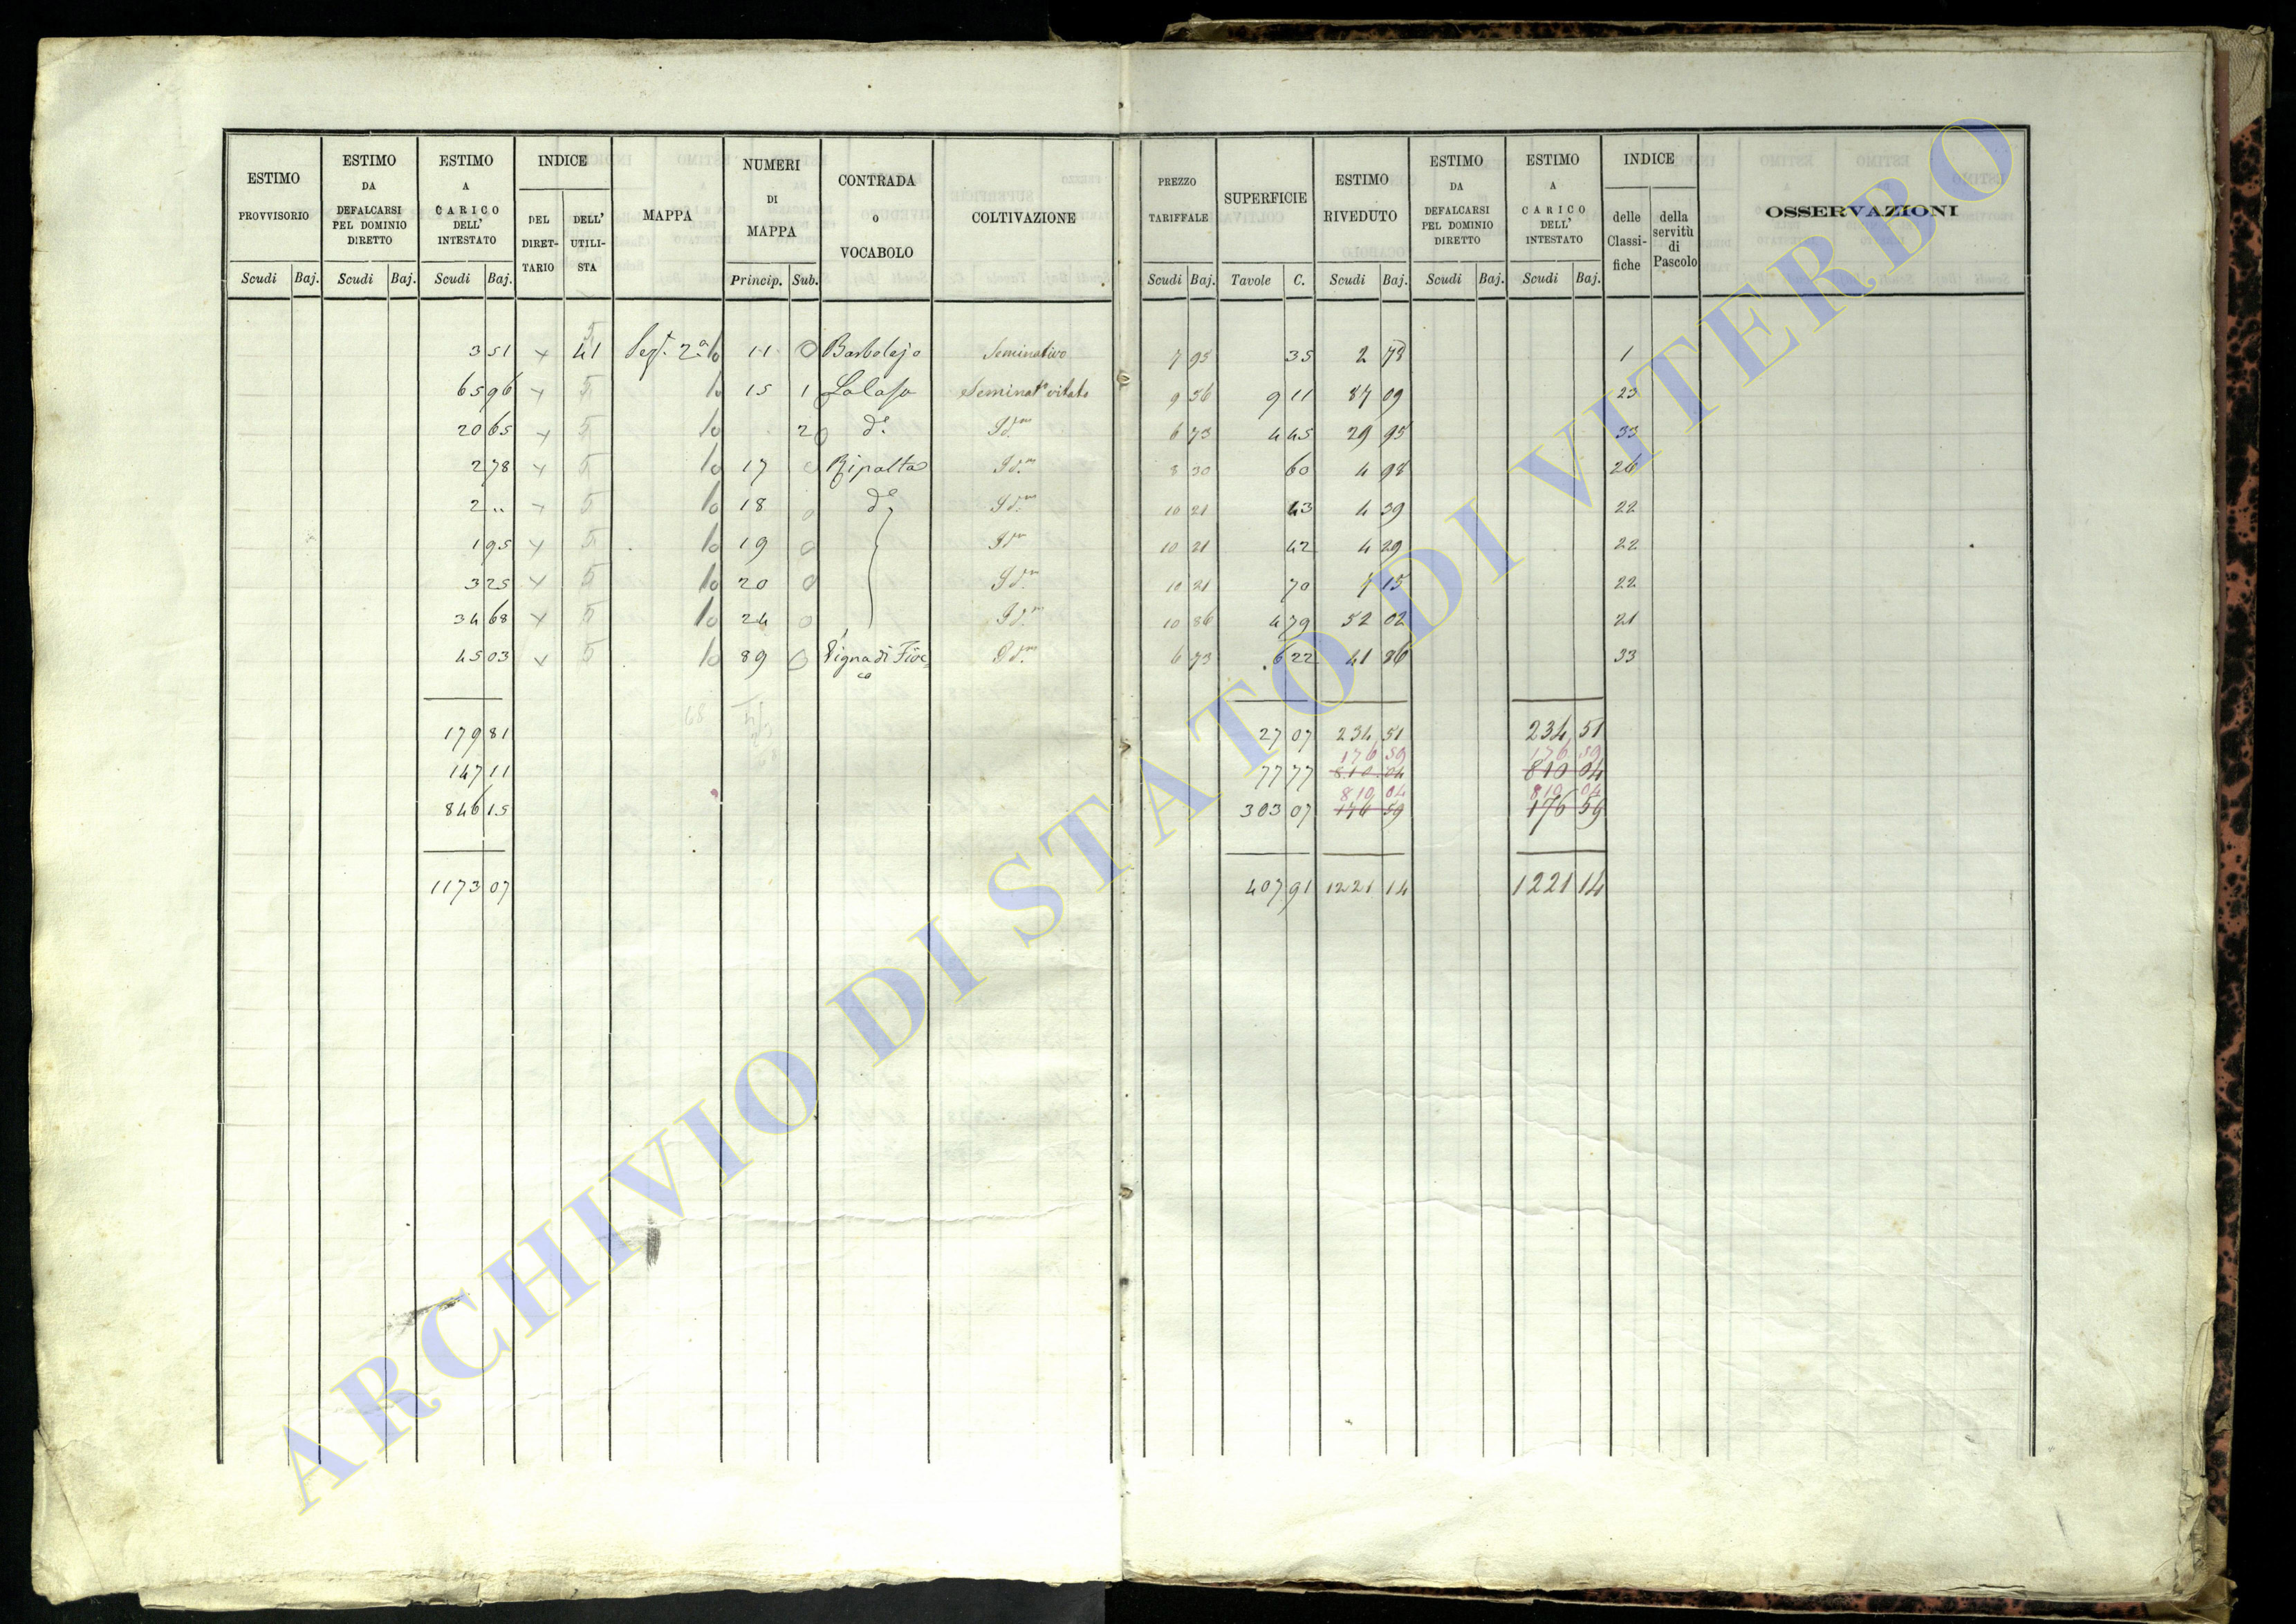 ESTIMO PROVVISORIO Scudi Baj.
ESTIMO DA DEFALCARSI PEL DOMINIO DIRETTO Scudi Baj.
ESTIMO A CARICO DELL' INTESTATO Scudi Baj.
INDICE DEL DIRET-TARIO DELL' UTILI-STA
MAPPA
NUMERI DI MAPPA Princip. Sub.
CONTRADA o VOCABOLO
COLTIVAZIONE
PREZZO TARIFFALE Scudi Baj.
SUPERFICIE Tavole C.
ESTIMO RIVEDUTO Scudi Baj.
ESTIMO DA DEFALCARSI PEL DOMINIO DIRETTO Scudi Baj.
ESTIMO A CARICO DELL' INTESTATO Scudi Baj.
INDICE delle Classi-fiche della servitù di Pascolo
OSSERVAZIONI
3 51 41 5 Sezt. 2a 11 0 Barbolejo Seminativo 7 95 35 2 78 1
65 96 5 15 1 Seminato vitato 9 56 9 11 87 09 23
20 65 5 2 do Idm 6 73 4 45 29 95 33
2 78 5 17 Ripalta Idm 8 30 60 4 98 26
2 " 5 18 0 do Idm 10 21 43 4 39 22
1 95 5 19 0 Idm 10 21 42 4 29 22
3 25 5 20 0 Idm 10 21 70 7 15 22
34 68 5 24 0 Idm 10 86 4 79 52 02 21
45 03 5 89 0 Vigna di Fioc=ca Idm 6 73 6 22 41 86 33
179 81 27 07 234 51 234 51
176 59 176 59
147 11 77 77 810 04 810 04
810 04 810 04
846 15 303 07 176 59 176 59
1173 07 407 91 1221 14 1221 14
ARCHIVIO DI STATO DI VITERBO